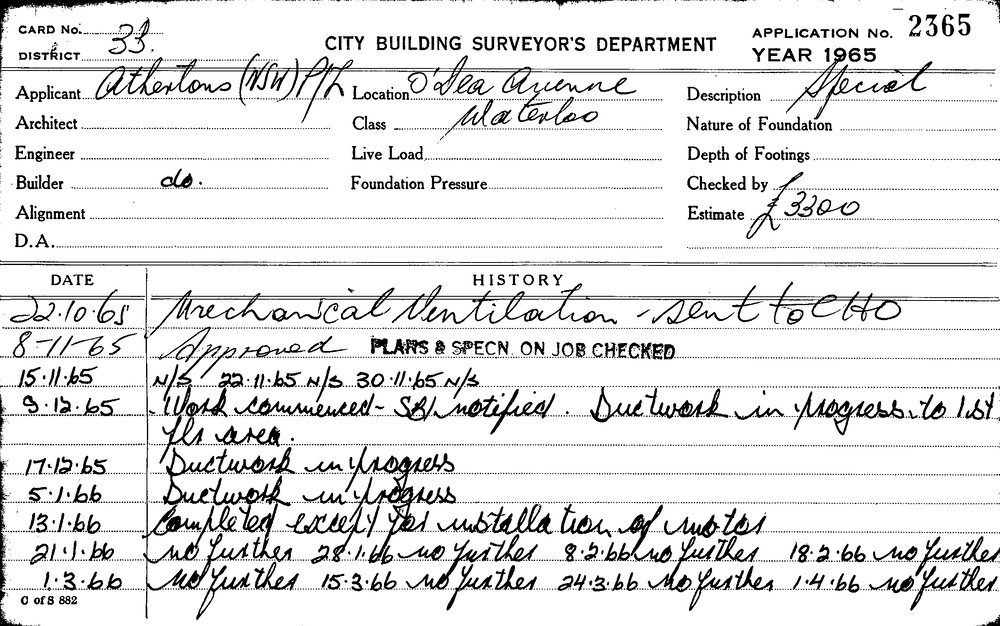 CARD No. 33.
DISTRICT
CITY BUILDING SURVEYOR'S DEPARTMENT
APPLICATION No. 2365
YEAR 1965
Applicant Athertons (NSW) P/L Location O'Dea Avenue Description Special
Architect Class Waterloo Nature of Foundation
Engineer Live Load Depth of Footings
Builder do. Foundation Pressure Checked by
Alignment Estimate £3300
D.A.
DATE HISTORY
22.10.65 Mechanical Ventilation - sent to CHO
8-11-65 Approved PLANS & SPECN. ON JOB CHECKED
15.11.65 N/S 22.11.65 N/S 30.11.65 N/S
9.12.65 Work commenced - notified. Ductwork in progress to 1st
flr area.
17.12.65 Ductwork in progress
5.1.66 Ductwork in progress
13.1.66 Completed except for installation of motor
21.1.66 no further 28.1.66 no further 8.2.66 no further 18.2.66 no further
1.3.66 no further 15.3.66 no further 24.3.66 no further 1.4.66 no further
C of S 882